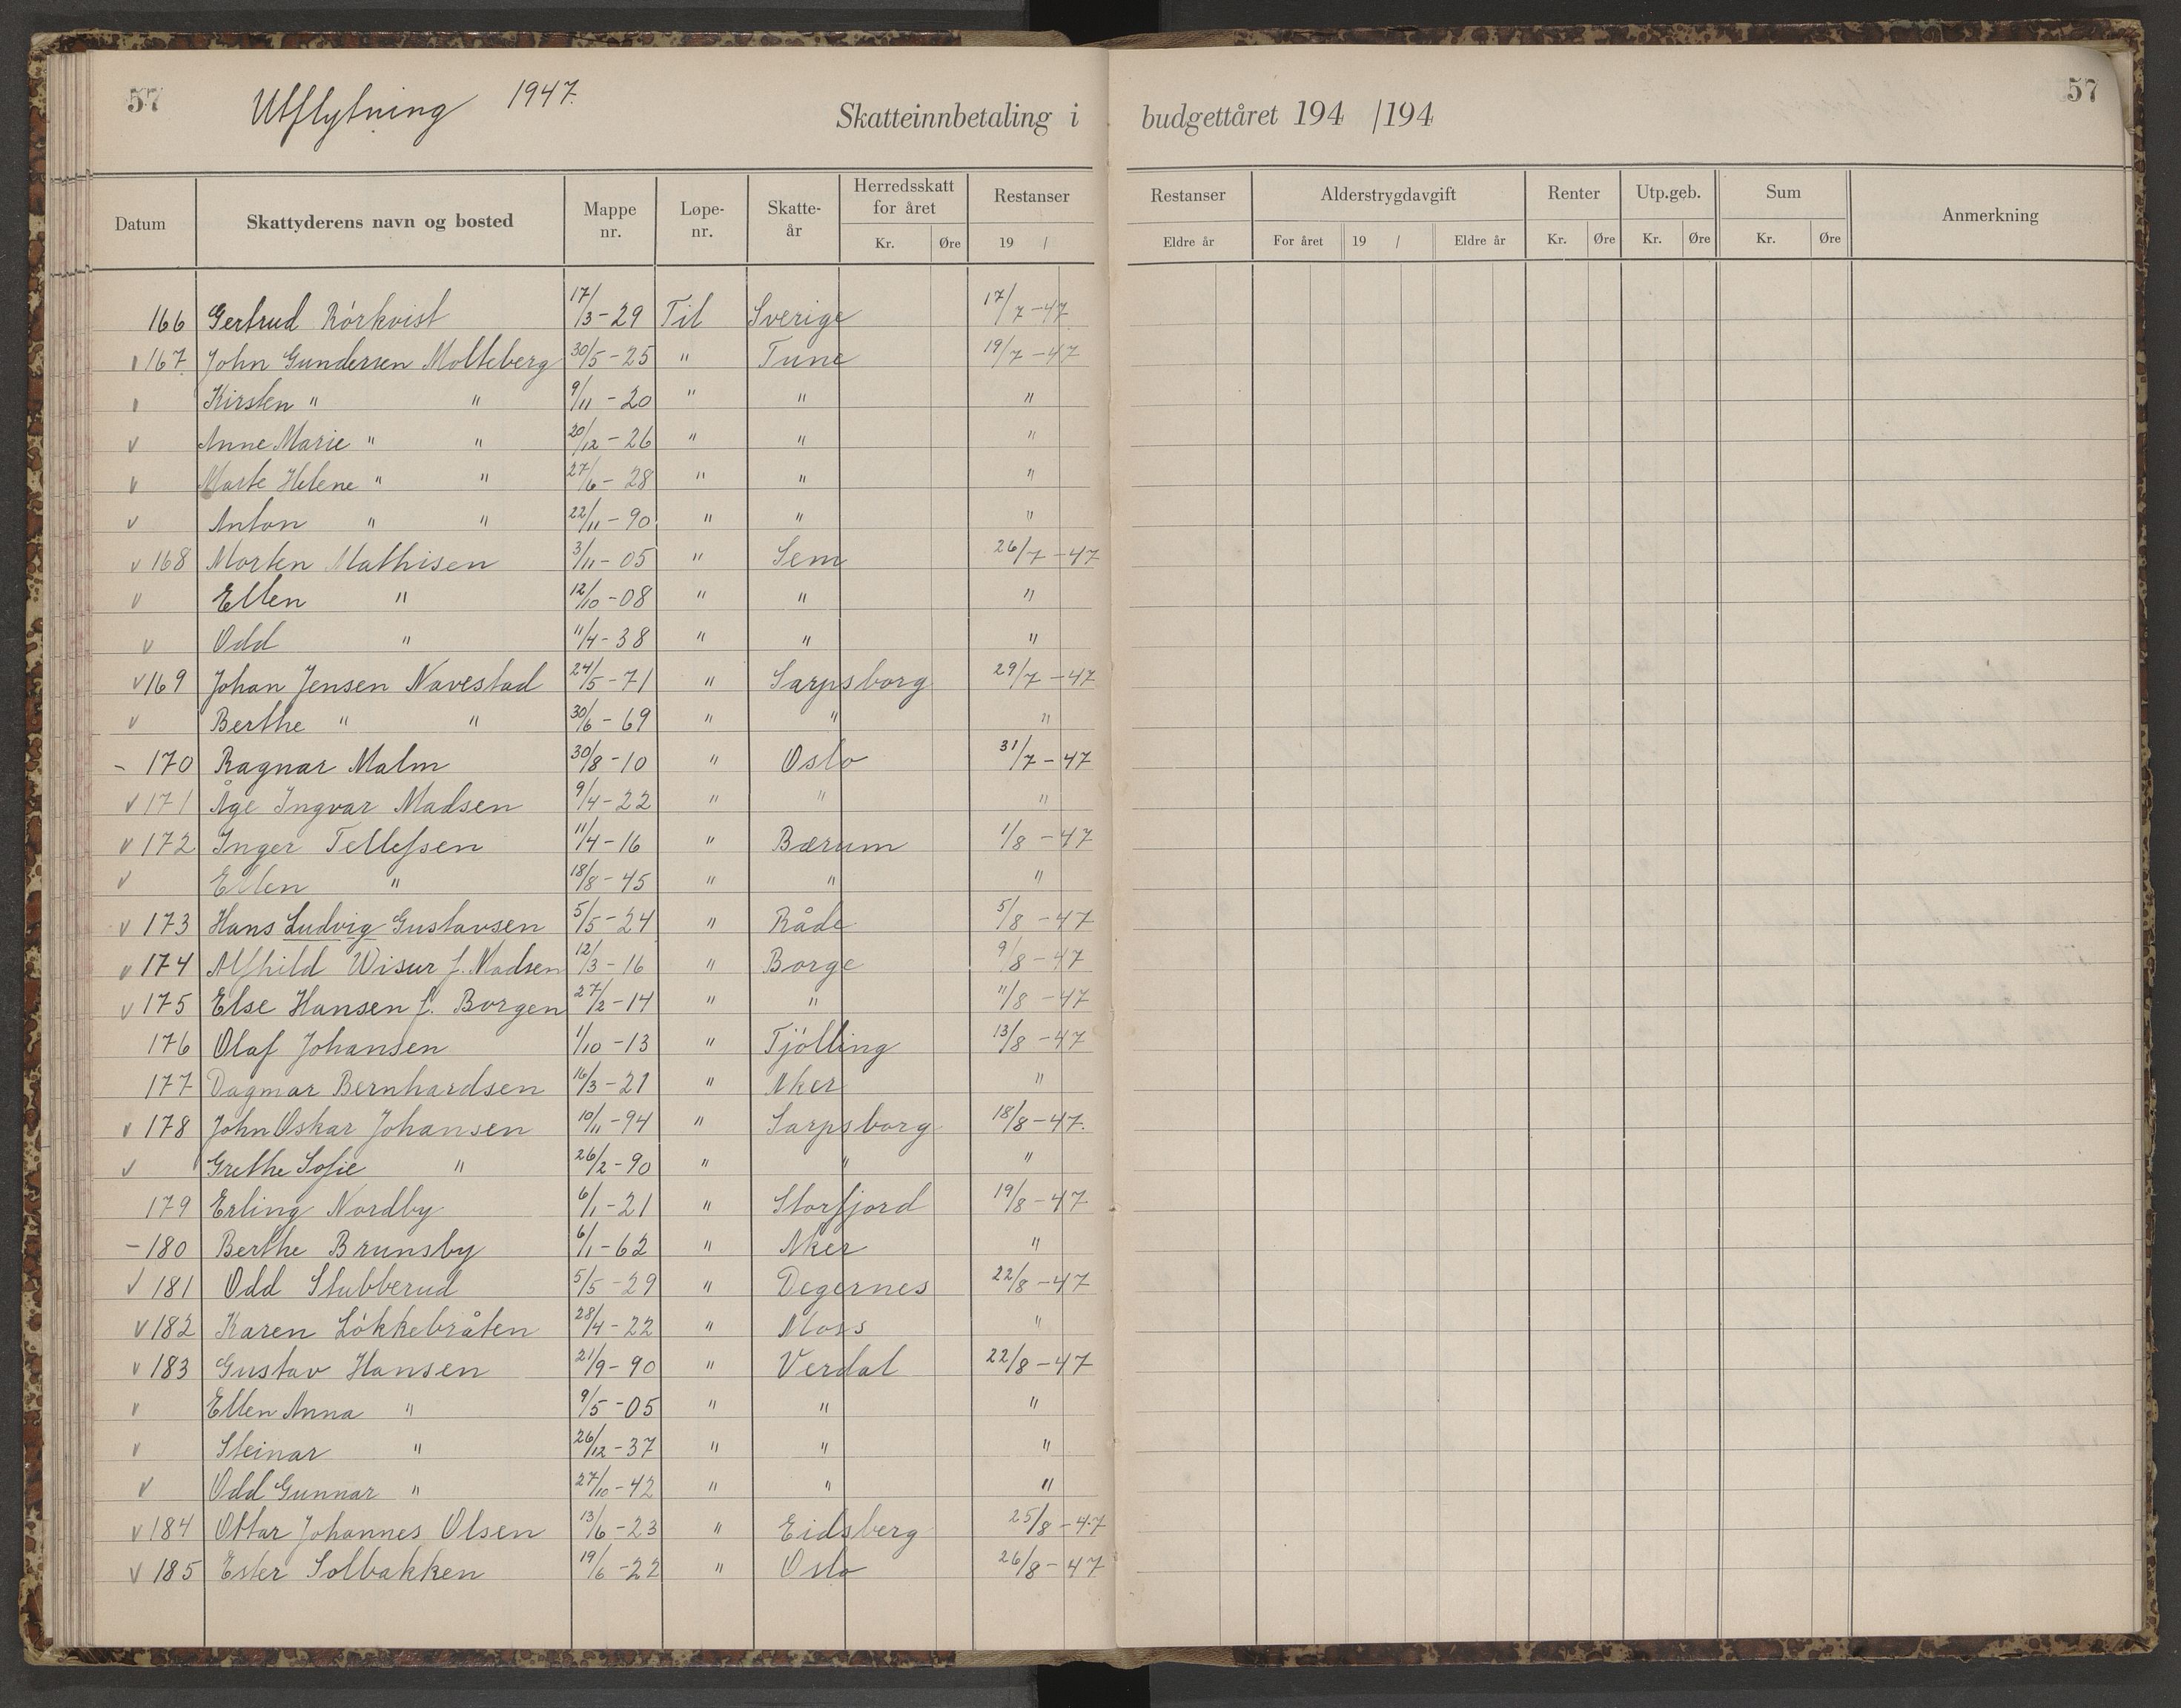 57 Utflytning 1947. Skatteinnbetaling i budgettåret 194 /194 57
Datum Skattyderens navn og bosted Mappe nr. Løpe-nr. Skatte-år Herredsskatt for året Kr. Øre Restanser 19 / Restanser Eldre år Alderstrygdavgift For året 19 / Eldre år Renter Kr. Øre Utp.geb. Kr. Øre Sum Kr. Øre Anmerkning
166 Gertrud Rórkvist 17/3-29 Til Sverige 17/7-47
v 167 John Gundersen Molteberg 30/5-25 " Tune 19/7-47
v Kirsten " " 9/11-20 " " "
v Anne Marie " " 20/12-26 " " "
v Marte Helene " " 27/6-28 " " "
v Anton " " 22/11-90 " " "
v 168 Morten Mathisen 3/11-05 " Sem 26/7-47
v Ellen " 12/10-08 " " "
v Odd " 11/4-38 " " "
v 169 Johan Jensen Navestad 24/5-71 " Sarpsborg 29/7-47
v Berthe " " 30/6-69 " " "
- 170 Ragnar Malm 30/8-10 " Oslo 31/7-47
v 171 Åge Ingvar Madsen 9/4-22 " " "
v 172 Inger Tellefsen 11/4-16 " Bærum 1/8-47
v Ellen " 18/8-45 " " "
v 173 Hans Ludvig Gustavsen 5/5-24 " Råde 5/8-47
v 174 Alfhild Wisur f. Madsen 12/3-16 " Borge 9/8-47
v 175 Else Hansen f. Borgen 27/2-14 " " 11/8-47
176 Olaf Johansen 1/10-13 " Tjólling 13/8-47
177 Dagmar Bernhardsen 16/3-21 " Aker "
v 178 John Oskar Johansen 10/11-94 " Sarpsborg 18/8-47.
v Grethe Sofie " 26/2-90 " " "
179 Erling Nordby 6/1-21 " Storfjord 19/8-47
- 180 Berthe Brunsby 6/1-62 " Aker "
v 181 Odd Stubberud 5/5-29 " Degernes 22/8-47
v 182 Karen Lókkebråten 28/4-22 " Moss "
v 183 Gustav Hansen 21/9-90 " Verdal 22/8-47
v Ellen Anna " 9/5-05 " " "
v Steinar " 26/12-37 " " "
v Odd Gunnar " 27/10-42 " " "
v 184 Ottar Johannes Olsen 13/6-23 " Eidsberg 25/8-47
v 185 Ester Solbakken 19/6-22 " Oslo 26/8-47